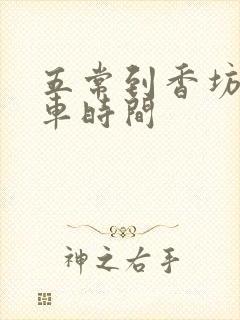 五常到香坊
車時間
神之右手